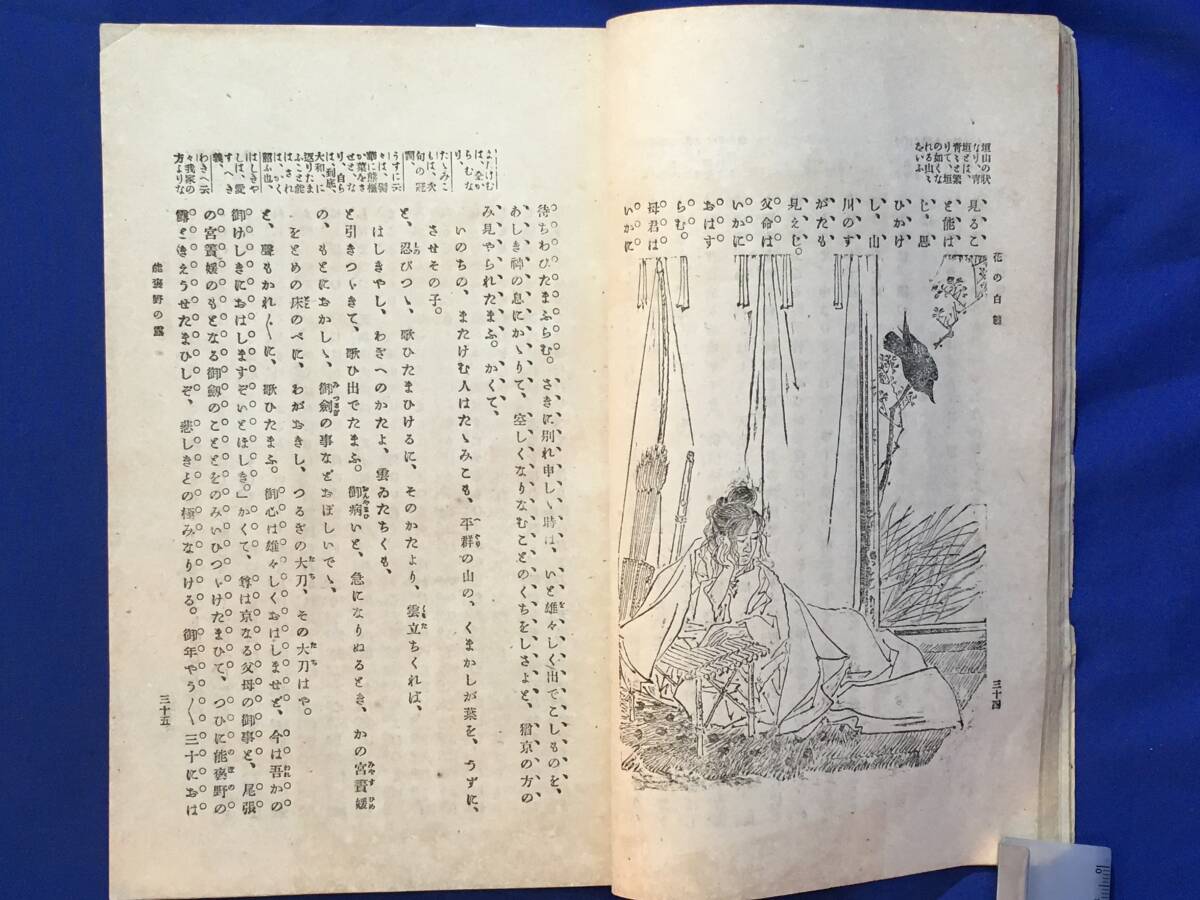 花の白雪
垣山の狀
なり、青
垣とは、
青々と繁
りて、垣
の如くな
れる山々
をいふ
見るこ
と能は
じ、思
ひかけ
し、山
川のす
がたも
見えじ。
父命は
いかに
おはす
らむ。
母君は
いかに
三十四
待ちわびたまふらむ。さきに別れ申しゝ時は、いと雄々しく出でこしものを、
あしき神の息にかゝりて、空しくなりなむことのくちをしさよと、猶京の方の
み見やられたまふ。かくて、
いのちの、またけむ人はたゝみこも、平群の山の、くまかしが葉を、うずに、
させその子。
と、忍びつゝ、歌ひたまひけるに、そのかたより、雲立ちくれば、
はしきやし、わぎへのかたよ、雲ゐたちくも、
と引きつゞきて、歌ひ出でたまふ。御病いと、急になりぬるとき、かの宮簀媛
の、もとにおかしゝ、御劍の事などおぼしいでゝ、
をとめの床のべに、わがおきし、つるぎの大刀、その大刀はや。
と、聲もかれ〴〵に、歌ひたまふ。御心は雄々しくおはしませど、今は吾かの
御けしきにおはしますぞいとほしき。」かくて、尊は京なる父母の御事と、尾張
の宮簀媛のもとなる御劔のこととをのみいひつゞけたまひて、つひに能褒野の
露ときえうせたまひしぞ、悲しきとの極みなりける。御年やう〳〵三十におは
またけむ
は、全か
らむな
り、
たゝみこ
もは、枕
句の冠
詞、
うずに云
々は、髻
華に熊樫
が葉をさ
せと、な
り、自ら
は、到底、
大和に
返りたま
ふこと能
はされ
ば、かく
詔ふ也、
はしきや
しは、愛
す、へき
義、
わきへ云
々我家の
方よりな
能褒野の露
三十五